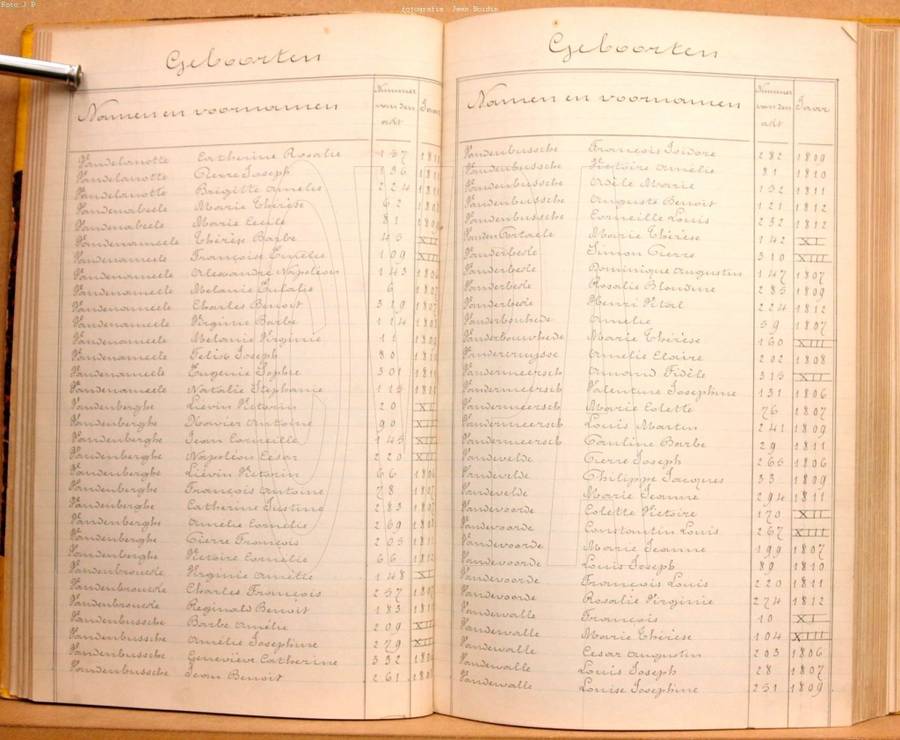 Foto J B
fotografie: Jean Bordin
Geboorten
Namen en voornamen Nummer van den akt Jaar
Vandelanotte Catherine Rosalie 157
Vandelanotte Pierre Joseph 136
Vandelanotte Brigitte Amelie 224
Vandenabeele Marie Thérèse 62
Vandenabeele Marie Cecile 81
Vandenameele Thérèse Barbe 45 XII
Vandenameele Françoise Amelie 109 XIII
Vandenameele Alexandre Napoléon 143
Vandenameele Melanie Eulalie 6
Vandenameele Charles Benoit 319
Vandenameele Virginie Barbe 114
Vandenameele Melanie Virginie 11
Vandenameele Felix Joseph 80
Vandenameele Eugenie Sophie 301
Vandenameele Natalie Stephanie 115
Vandenberghe Lievin Victorin 20
Vandenberghe Xavier Antoine 90
Vandenberghe Jean Corneille 145
Vandenberghe Napoléon César 220
Vandenberghe Liévin Victorin 66
Vandenberghe François Antoine 78
Vandenberghe Catherine Justine 283
Vandenberghe Amelie Cornélie 269
Vandenberghe Pierre François 265
Vandenberghe Victoire Cornélie 66
Vandenbroucke Virginie Amélie 148
Vandenbroucke Charles François 257
Vandenbroucke Reginald Benoit 183
Vandenbussche Barbe Amélie 209
Vandenbussche Amelie Josephine 279
Vandenbussche Geneviève Catherine 332
Vandenbussche Jean Benoit 261
Geboorten
Namen en voornamen Nummer van den akt Jaar
Vandenbussche François Isidore 282 1809
Vandenbussche Victoire Amélie 81 1810
Vandenbussche Adèle Marie 132 1811
Vandenbussche Auguste Benoit 121 1812
Vandenbussche Corneille Louis 232 1812
Marie Thérèse 142 XI
Vanderbeole Simon Pierre 310 XIII
Vanderbeole Dominique Augustin 147 1807
Vanderbeole Rosalie Blondine 285 1809
Vanderbeole Henri Vital 224 1812
Amelie 59 1807
Vanderbouwhede Marie Thérèse 160 XIII
Vandercruysse Amélie Claire 202 1808
Vandermeersch Armand Fidèle 315 XII
Vandermeersch Valentine Josephine 131 1806
Vandermeersch Marie Colette 76 1807
Vandermeersch Louis Martin 241 1809
Vandermeersch Pauline Barbe 29 1811
Vandevelde Pierre Joseph 265 1806
Vandevelde Philippe Jacques 33 1809
Vandevelde Marie Jeanne 294 1811
Vandevoorde Colette Victoire 170 XII
Vandevoorde Constantin Louis 267 XIII
Vandevoorde Marie Jeanne 199 1807
Vandevoorde Louis Joseph 89 1810
Vandevoorde François Louis 220 1811
Vandevoorde Rosalie Virginie 274 1812
Vandewalle François 10 XI
Vandewalle Marie Thérèse 104 XIII
Vandewalle Cesar Augustin 203 1806
Vandewalle Louis Joseph 28 1807
Vandewalle Louise Josephine 251 1809